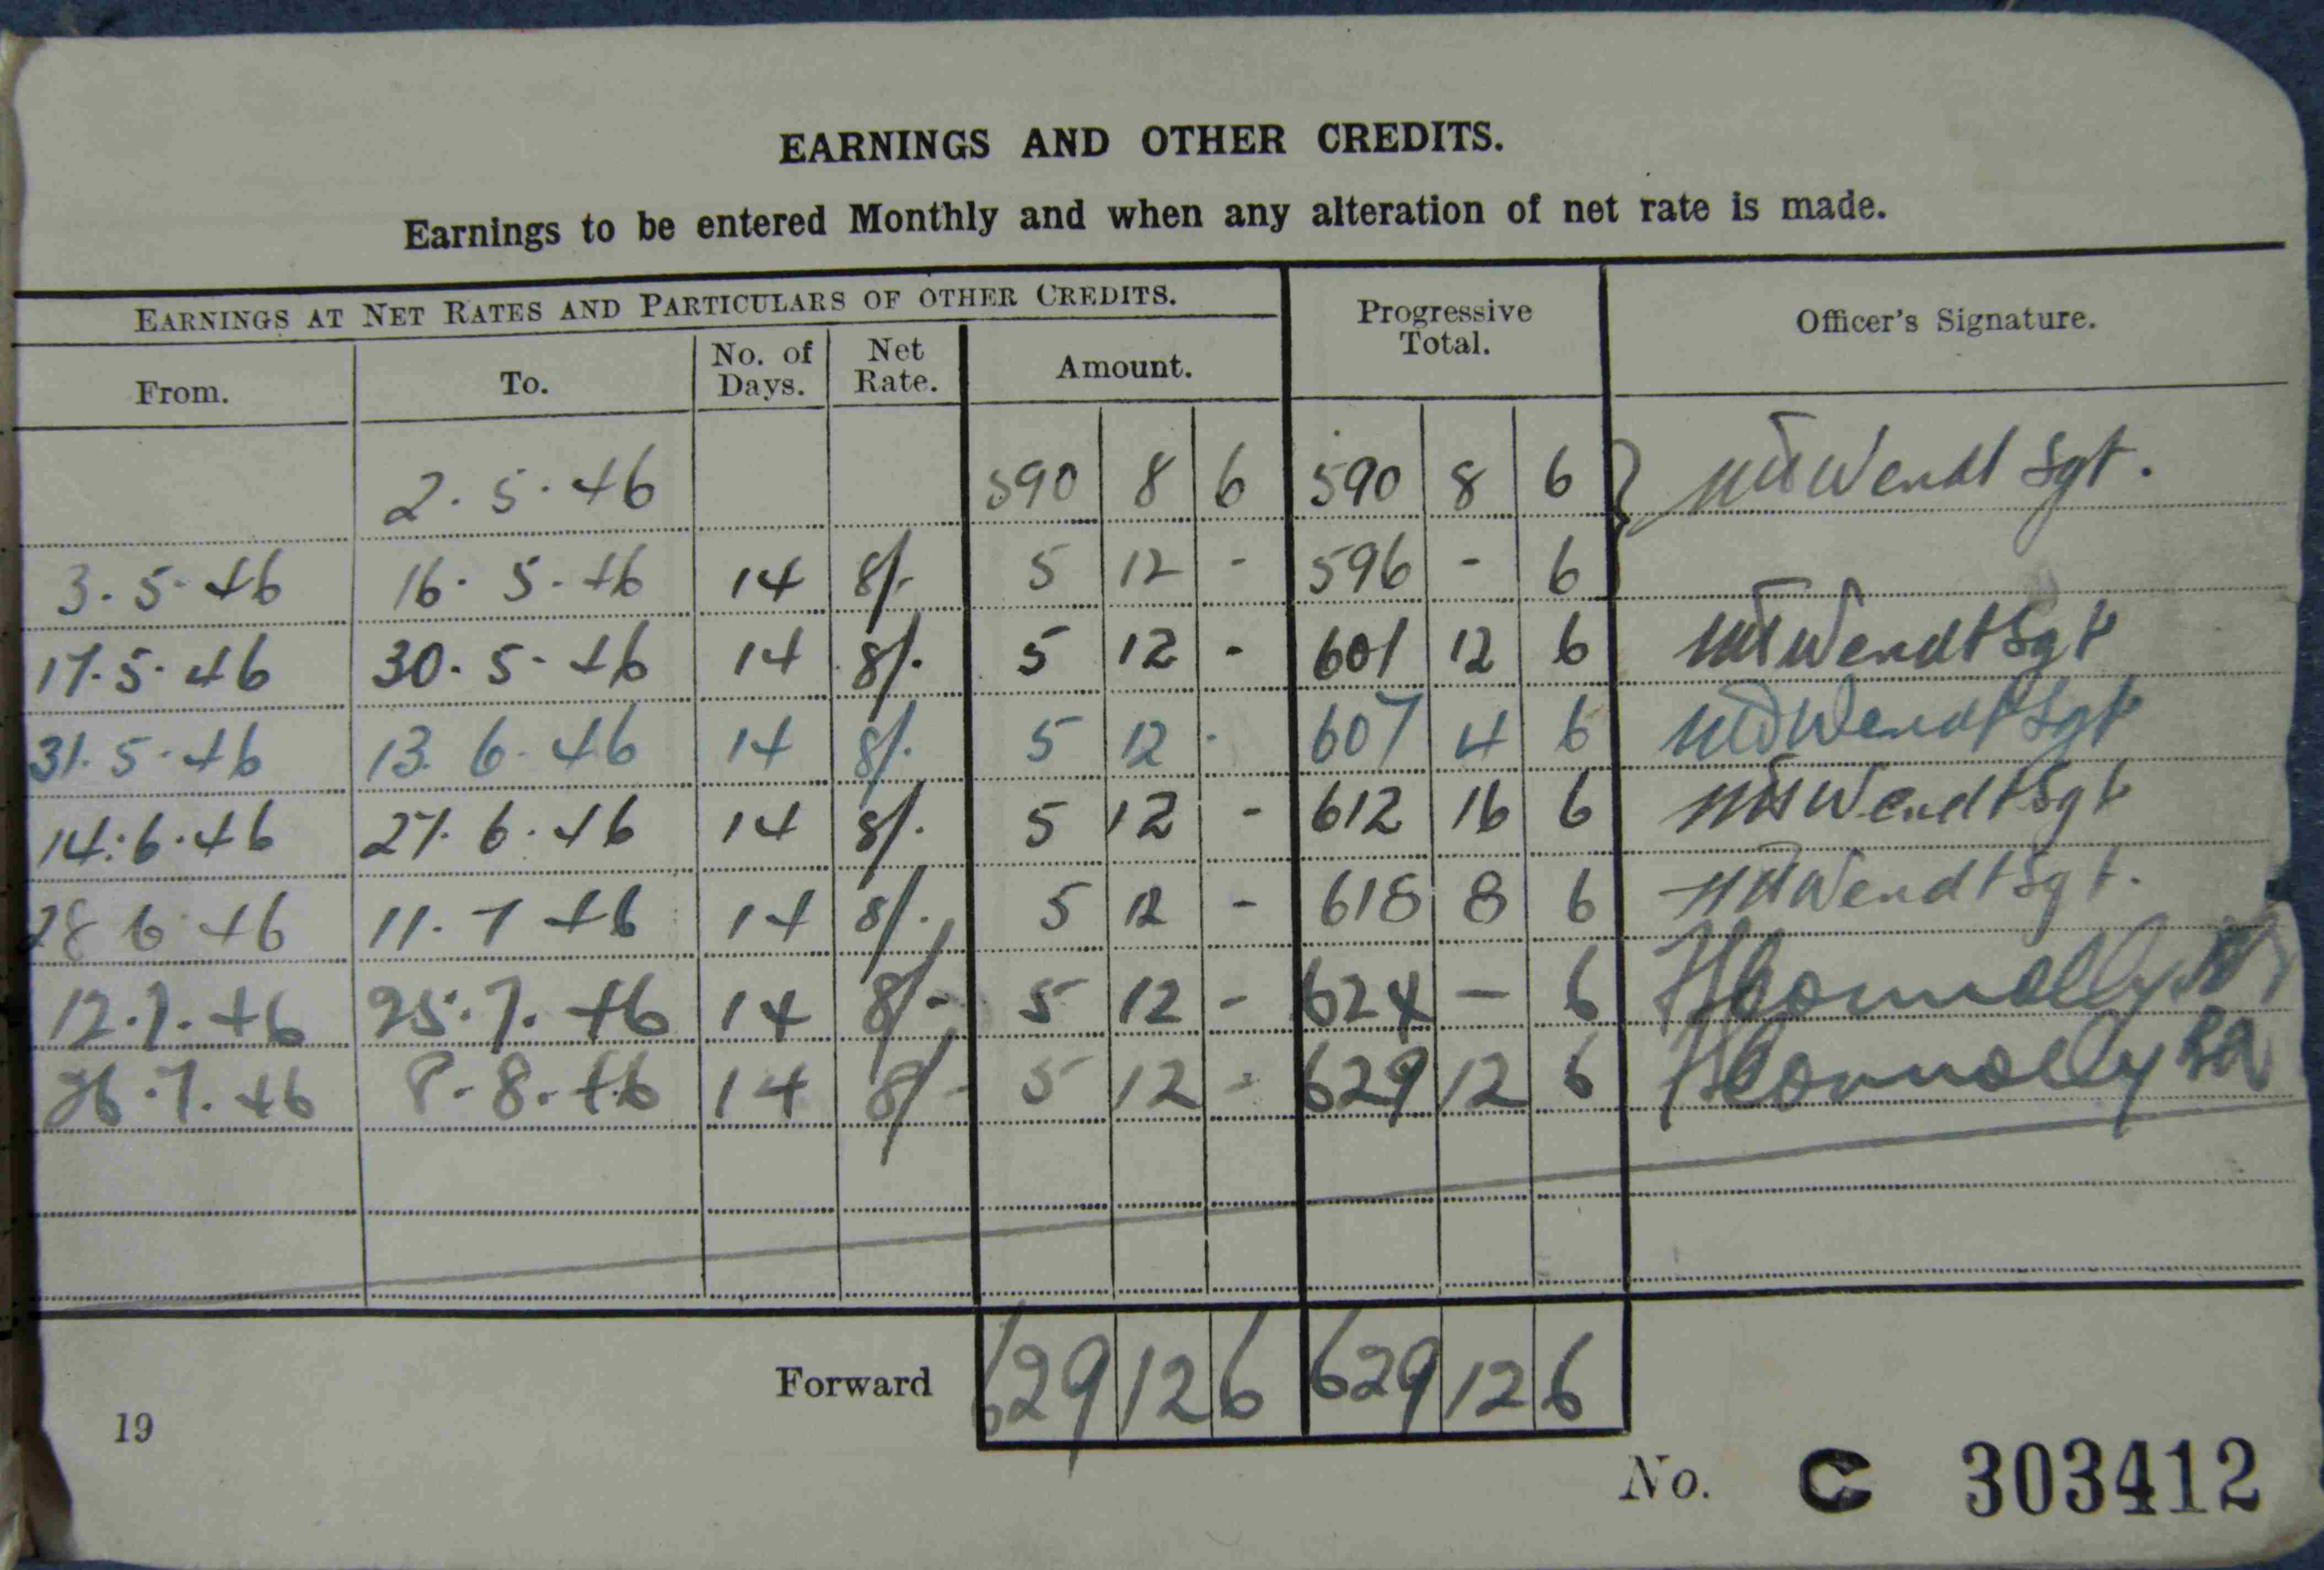 EARNINGS AND OTHER CREDITS.
Earnings to be entered Monthly and when any alteration of net rate is made.
EARNINGS AT NET RATES AND PARTICULARS OF OTHER CREDITS. Progressive Total. Officer's Signature.
From. To. No. of Days. Net Rate. Amount.
2. 5. 46 590 8 6 590 8 6 Wendt Sgt.
3. 5. 46 16. 5. 46 14 8/- 5 12 - 596 - 6
17. 5. 46 30. 5. 46 14 8/. 5 12 - 601 12 6 Wendt Sgt
31. 5. 46 13. 6. 46 14 8/. 5 12 . 607 4 6 Wendt Sgt
14. 6. 46 27. 6. 46 14 8/. 5 12 - 612 16 6 Wendt Sgt
28 6 46 11. 7 46 14 8/. 5 12 - 618 8 6 Wendt Sgt.
12. 7. 46 25. 7. 46 14 8/- 5 12 - 624 - 6 Connolly
26. 7. 46 8. 8. 46 14 8/- 5 12 - 629 12 6 Connolly
Forward 629 12 6 629 12 6
19
No. C 303412